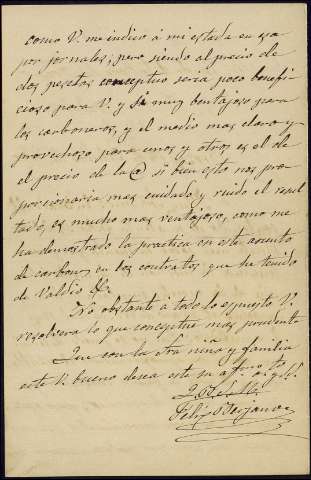 como V. me indicó á mi estada en esa
por jornales; pero siendo al precio de
dos pesetas conceptuo seria poco benefi
cioso para V. y si muy bentajoso para
los carboneros, y el medio mas claro y
provechoso para unos y otros es el de
el precio de la @ si bien esto nos pro
porcionaria mas cuidado y ruido el resul
tado es mucho mas ventajoso, como me
ha demostrado la practica en este asunto
de carbones en los contratos que he tenido
de Valdio &c.
No obstante á todo lo espuesto V.
resolvera lo que conceptue mas prudente
Que con la otra niña y familia
este V. bueno desea este su
Felix